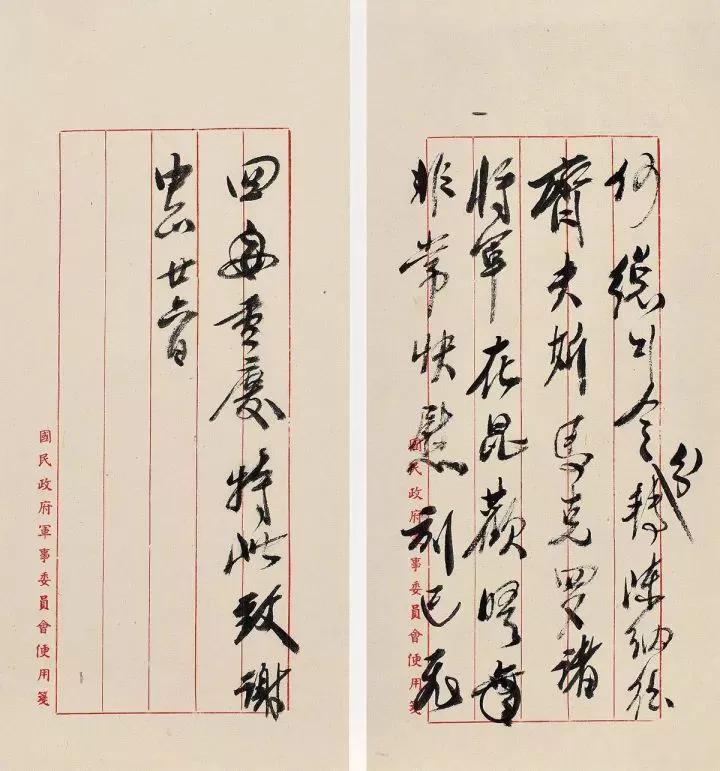 何總司令分轉陳納德
齊夫斯馬克羅諸
將軍在昆歡晤
非常快慰刻已飛
國民政府軍事委員會便用箋
回 重慶特此致謝
中正 廿六日
國民政府軍事委員會便用箋